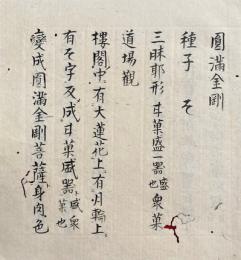 圓滿金剛
種子 そ
三昧耶形 斗菓盛一器也 盛衆菓
道場觀
樓閣中有大蓮花上有月輪上
有そ字变成斗菓盛器 盛衆菓也
變成圓滿金剛菩薩身肉色